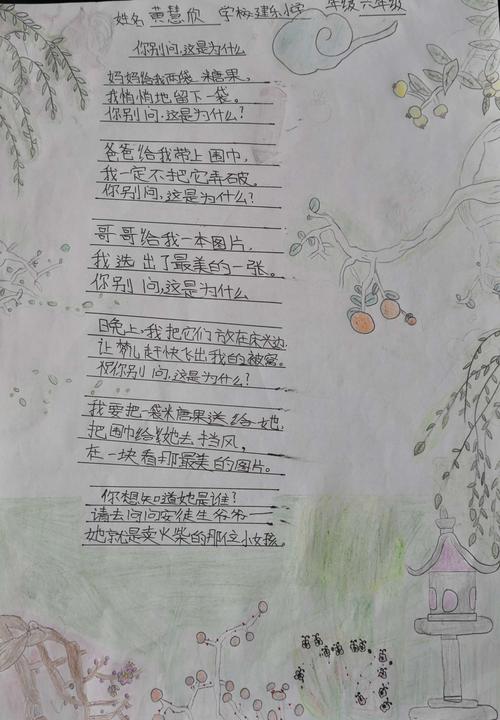 姓名 黄慧欣 学校建乐小学 年级六年级
你别问,这是为什么
妈妈给我两袋糖果,
我悄悄地留下一袋。
你别问.这是为什么?
爸爸给我带上围巾,
我一定不把它弄破。
你别问,这是为什么?
哥哥给我一本图片,
我选出了最美的一张。
你别问,这是为什么
晚上,我把它们放在床头边,
让梦儿赶快飞出我的被窝。
你别问,这是为什么?
我要把一袋糖果送给她,
把围巾给她去挡风,
在一块看那最美的图片。
你想知道她是谁?
请去问问安徒生爷爷——
她就是卖火柴的那位小女孩。